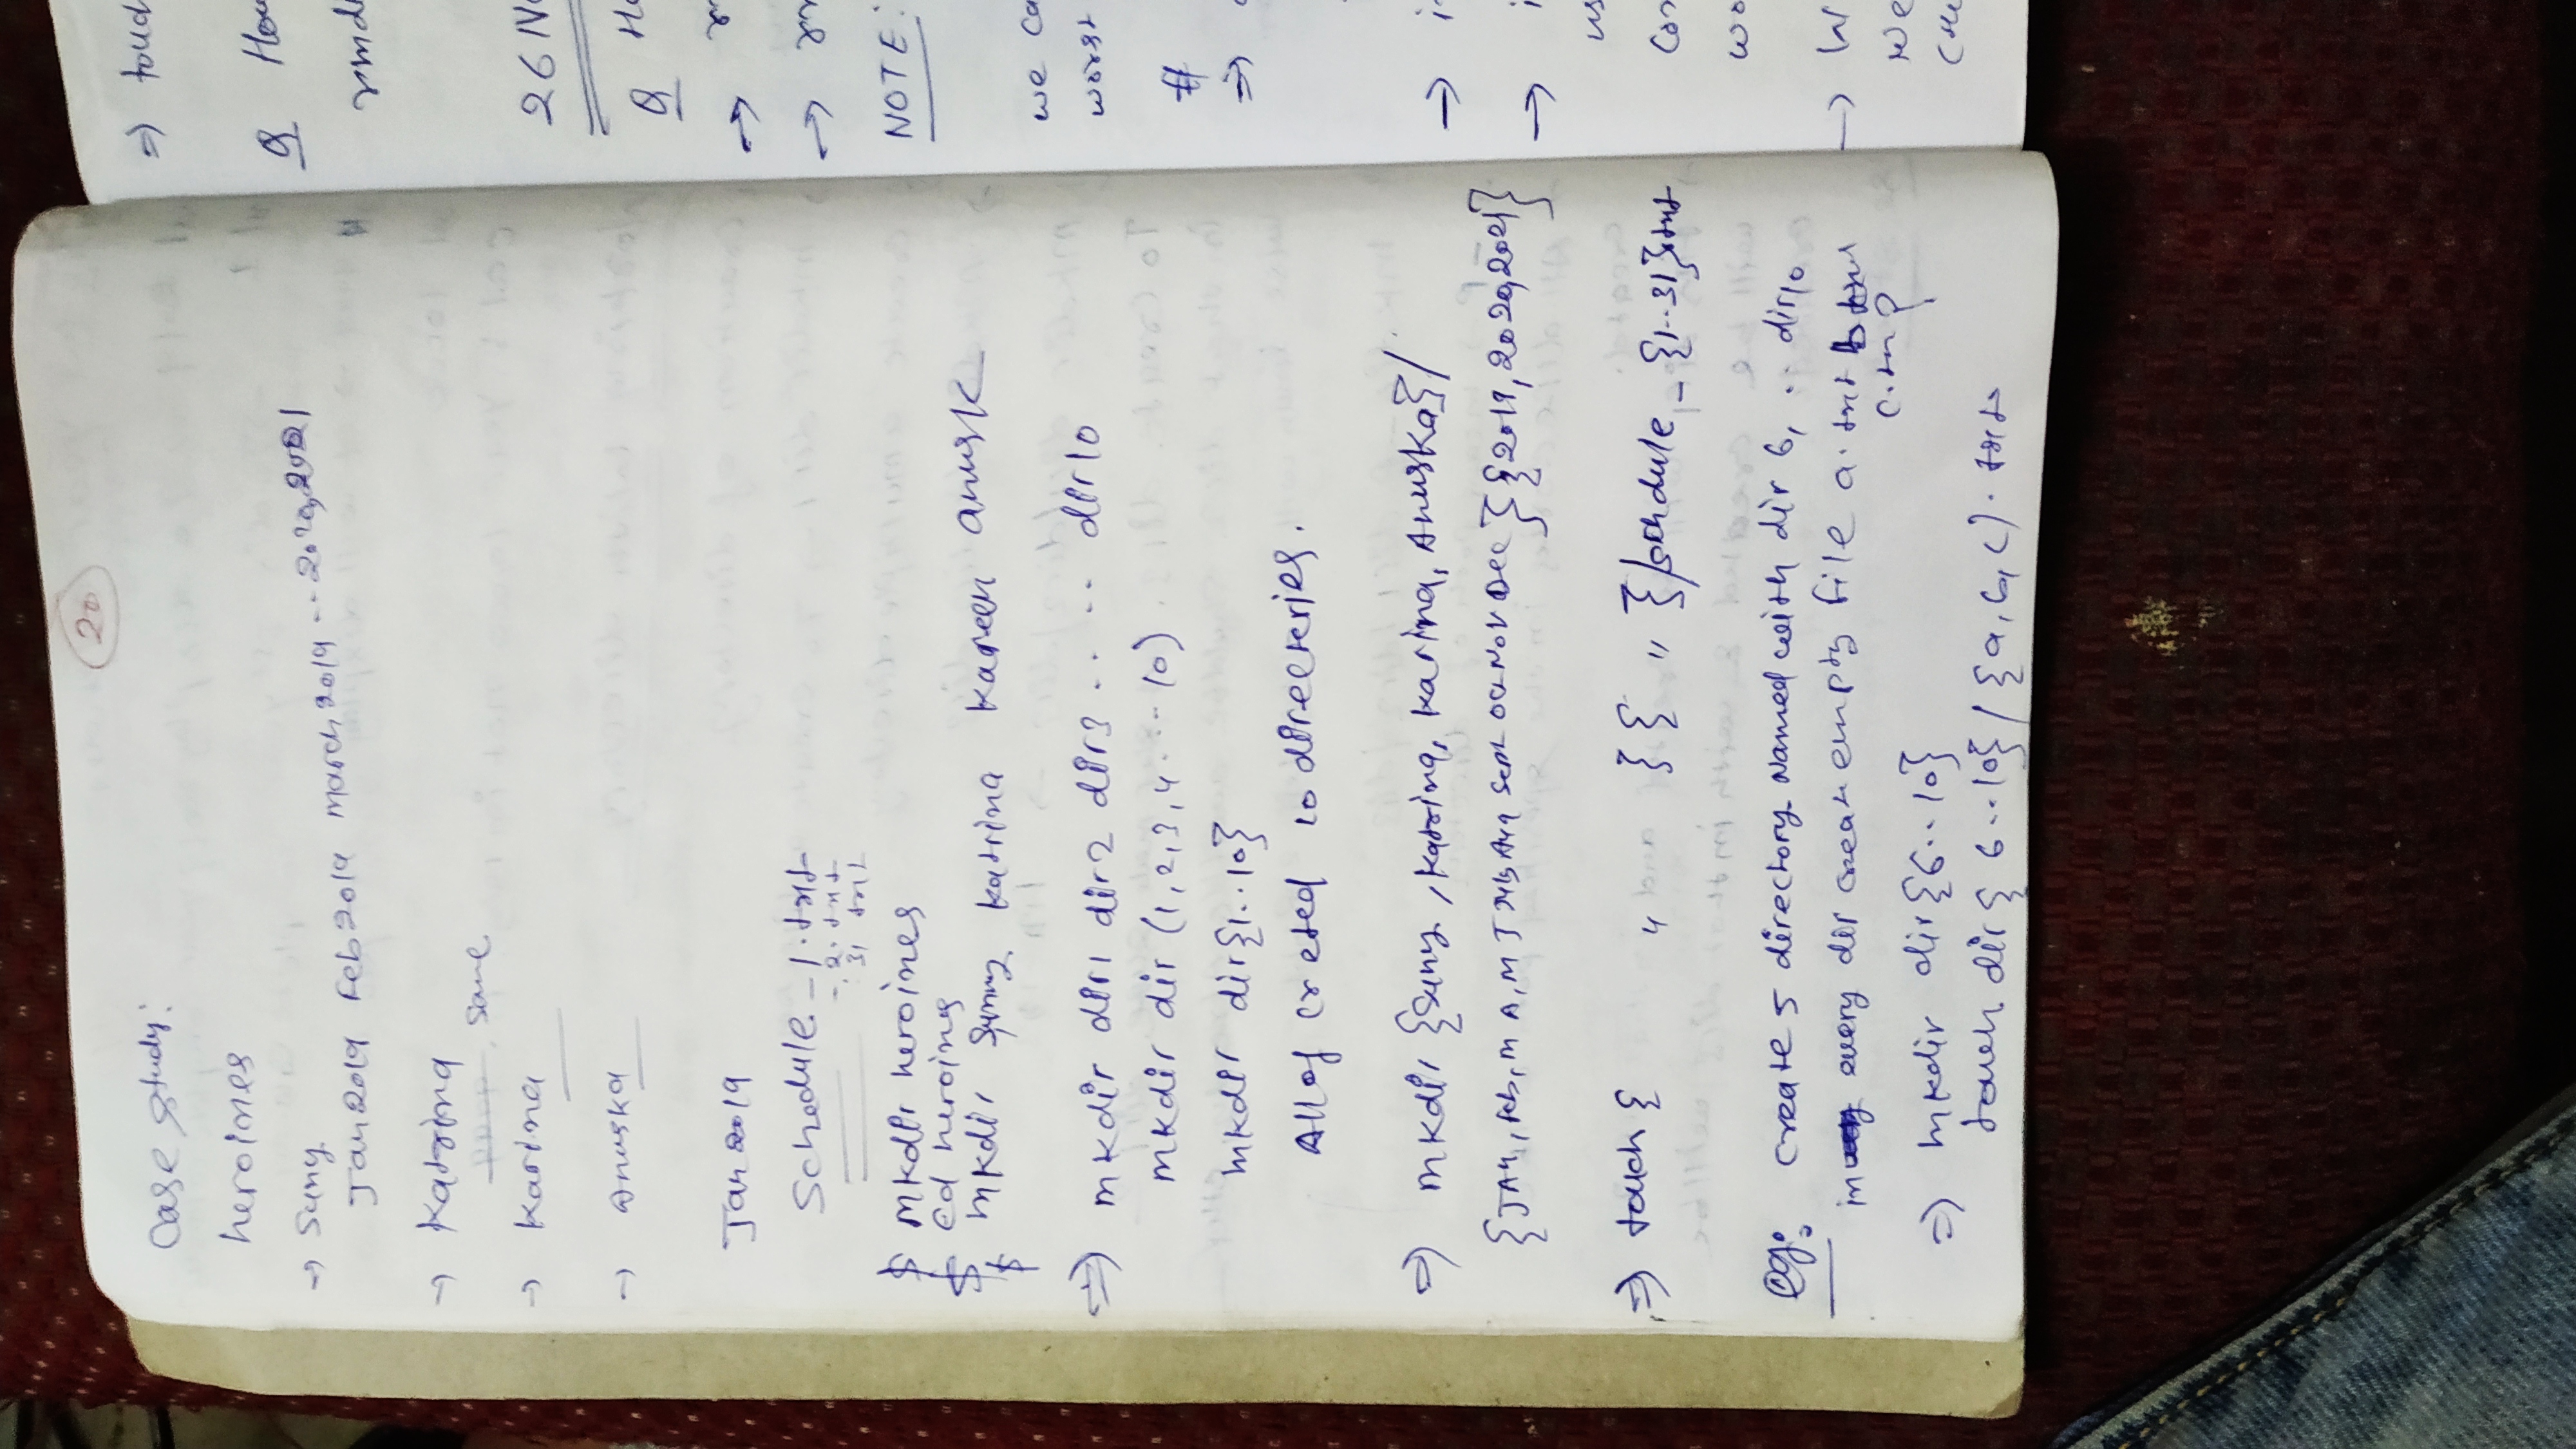 20
Case study:
heroines
→ Suny
Jan2019 Feb2019 march2019 .. 2020,2021
→ Katrina
Same
→ Karina
→ Anuska
Jan2019
Schedule_1.txt
_2.txt
31 txt
$ mkdir heroines
$ cd heroines
$ mkdir Sunny katrina Kareen anusk
⇒ mkdir dir1 dir2 dir3 .. .. dir10
mkdir dir (1,2,3,4...10)
mkdir dir{1..10}
All of creted 10 directeries.
⇒ mkdir {Suny, Katrina, Karina, Anuska}/
{JAn, Feb, M A, M J July Aug Sept Oct Nov Dec}{2019,2020,2021}
⇒ touch { " } { " }/schdule_{1..31}.txt
eg: create 5 directory Named with dir 6, .. dir10
in every dir create empty file a.txt b
c.tx ?
⇒ mkdir dir{6..10}
touch dir{6..10}/{a,b,c}.txt
⇒ touch
Q How
rmdi
26 No
Q Ho
→ rm
→ rm
NOTE:
we ca
worst
#
⇒
→ i
→ i
us
Cor
wo
→ W
we